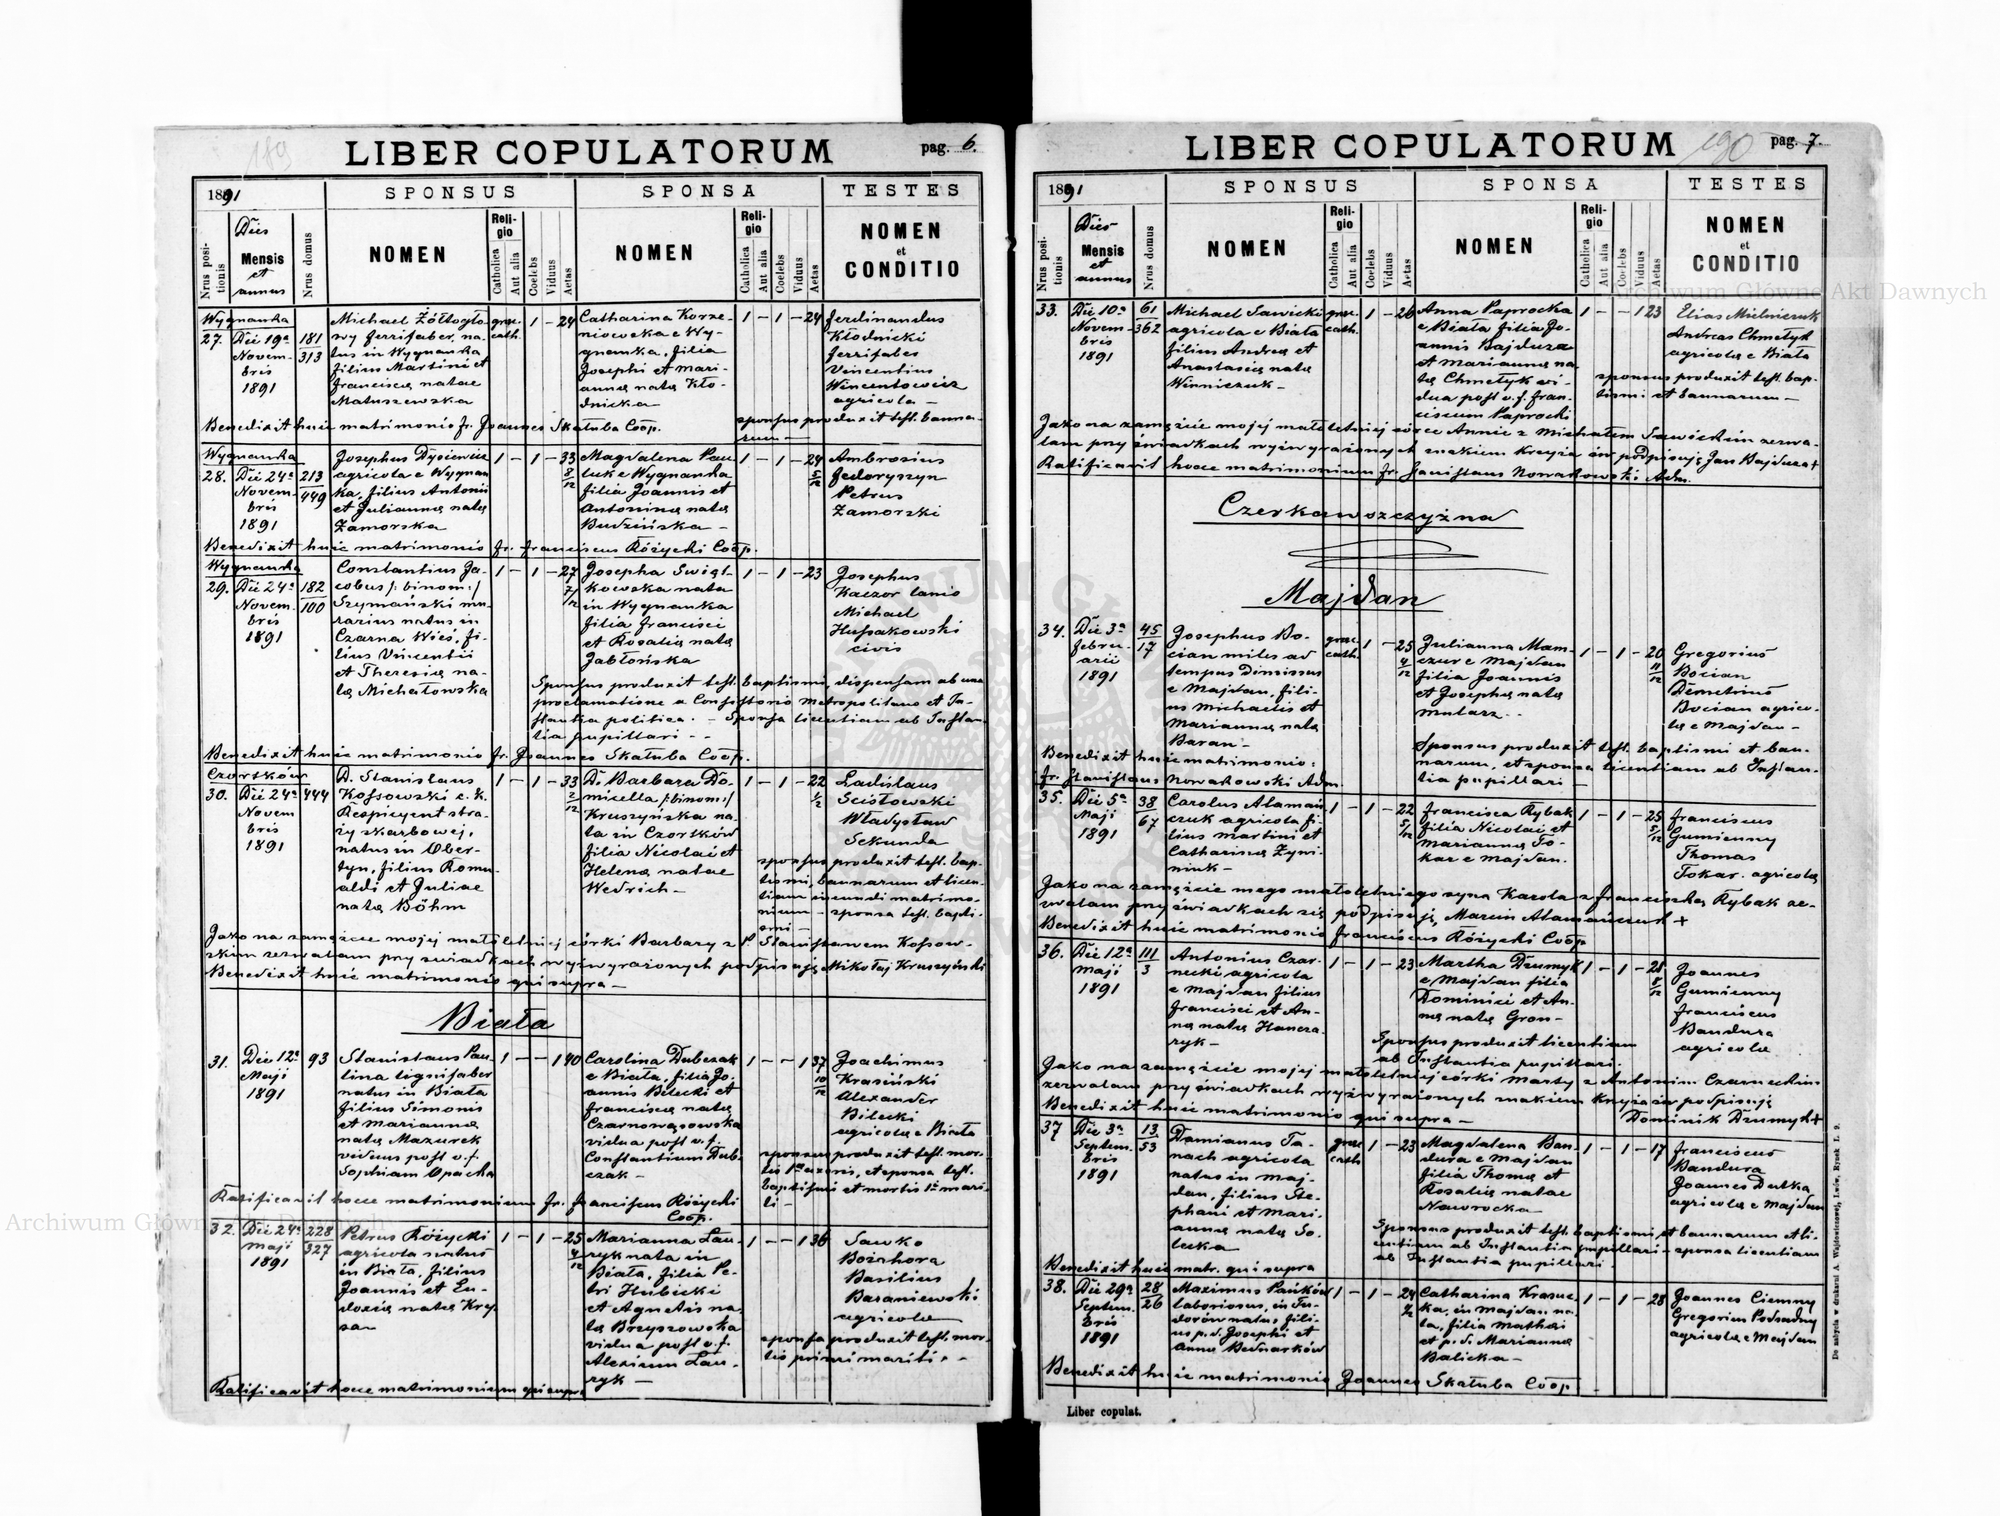 189
LIBER COPULATORUM
pag. 6.
1891
SPONSUS
SPONSA
TESTES
Nrus posi-
tionis
Dies
Mensis
et
annus
Nrus domus
NOMEN
Reli-
gio
Catholica
Aut alia
Coelebs
Viduus
Aetas
NOMEN
Reli-
gio
Catholica
Aut alia
Coelebs
Viduus
Aetas
NOMEN
et
CONDITIO
Wygnanka
27.
Die 19a
Novem-
bris
1891
181
313
Michael Żółtogło-
wy ferrifaber, na-
tus in Wygnanka
filius Martini et
Franciscae natae
Matuszewska
graec.
cath.
1 - 24
Catharina Korze-
niowska e Wy-
gnanka, filia
Josephi et Mari-
annae natae Kło-
dnicka
1 - 1 - 24
Ferdinandus
Kłodnicki
ferrifaber
Vincentius
Wincentowicz
agricola
Benedixit huic matrimonio fr. Joannes Skałuba Coop.
sponsus produxit test. banno-
rum
Wygnanka
28.
Die 24a
Novem-
bris
1891
213
449
Josephus Dysiewicz
agricola e Wygnan
ka, filius Antonii
et Juliannae natae
Zamorska
1 - 1 - 33
8/12
Magdalena Pau-
luk e Wygnanka
filia Joannis et
Antoninae natae
Budzińska
1 - 1 - 24
5/12
Ambrosius
Fedoryszyn
Petrus
Zamorski
Benedixit huic matrimonio fr. Franciscus Różycki Coop.
Wygnanka
29.
Die 24a
Novem-
bris
1891
182
100
Constantius Ja-
cobus /: binom:/
Szymański mu-
rarius natus in
Czarna Wieś, fi-
lius Vincentii
et Theresiae na-
tae Michałowska
1 - 1 - 27
7/12
Josepha Świąt-
kowska nata
in Wygnanka
filia Francisci
et Rosaliae natae
Jabłońska
1 - 1 - 23
Josephus
Kaczor lanio
Michael
Hussakowski
civis
Sponsus produxit test. baptismi, dispensam ab una
proclamatione a Consistorio Metropolitano et In-
stantia politica. - Sponsa licentiam ab Instan-
tia pupillari
Benedixit huic matrimonio fr. Joannes Skałuba Coop.
Czortków
30.
Die 24a
Novem
bris
1891
444
D. Stanislaus
Kossowski c. k.
Respicyent stra-
ży skarbowej,
natus in Ober-
tyn, filius Romu-
aldi et Juliae
natae Böhm
1 - 1 - 33
2/12
D. Barbara Do-
micella /:binom:/
Kruszyńska na-
ta in Czortków
filia Nicolai et
Helenae natae
Wedrich
1 - 1 - 22
1/2
Ladislaus
Ścisłowski
Władysław
Sekunda
sponsus produxit test. bap-
tismi, bannorum et licen-
tiam ineundi matrimo-
nium - sponsa test. bapti-
smi
Jako na zamężcie mojej małoletniej córki Barbary z P. Stanisławem Kossow-
skim zezwalam przy świadkach wyżwyrażonych podpisuję Mikołaj Kruszyński
Benedixit huic matrimonio qui supra
Biała
31.
Die 12a
Maji
1891
93
Stanislaus Pau-
lina lignifaber
natus in Biała
filius Simonis
et Mariannae
natae Mazurek
viduus post o. f.
Sophiam Opacka
1 - - 1 40
Carolina Dubczak
e Biała, filia Jo-
annis Bilecki et
Franciscae natae
Czarnowąsowska
vidua post o. f.
Constantium Dub-
czak
1 - - 1 37
10/12
Joachimus
Krasiński
Alexander
Bilecki
agricolae Biała
sponsus produxit test. mor-
tis 1ae uxoris, et sponsa test.
baptismi et mortis 1i mari-
ti
Ratificavit hocce matrimonium fr. Franciscus Różycki
Coop.
32.
Die 24a
Maji
1891
228
327
Petrus Różycki
agricola natus
in Biała, filius
Joannis et Eu-
doxiae natae Kry-
sa
1 - 1 - 25
4/12
Marianna Lau-
ryk nata in
Biała, filia Pe-
tri Hubicki
et Agnetis na-
tae Bryszowska
vidua post o. f.
Alexium Lau-
ryk
1 - - 1 36
Sawko
Bożahora
Basilius
Baraniewski
agricolae
sponsa produxit test. mor-
tis primi mariti
Ratificavit hocce matrimonium qui supra
190
LIBER COPULATORUM
pag. 7.
1891
SPONSUS
SPONSA
TESTES
Nrus posi-
tionis
Dies
Mensis
et
annus
Nrus domus
NOMEN
Reli-
gio
Catholica
Aut alia
Coelebs
Viduus
Aetas
NOMEN
Reli-
gio
Catholica
Aut alia
Coelebs
Viduus
Aetas
NOMEN
et
CONDITIO
33.
Die 10a
Novem-
bris
1891
61
362
Michael Sawicki
agricola e Biała
filius Andreae et
Anastasiae natae
Winniczuk
graec.
cath.
1 - 26
Anna Paprocka
e Biała filia Jo-
annis Bajduza
et Mariannae na-
tae Chmełyk vi-
dua post o. f. Fran-
ciscum Paprocki
1 - - 1 23
Elias Mielniczuk
Andreas Chmełyk
agricolae Biała
sponsus produxit test. bap-
tismi et bannorum
Jako na zamężcie mojej małoletniej córce Annie z Michałem Sawickim zezwa-
lam przy świadkach wyżwyrażonych znakiem Krzyża św. podpisuję Jan Bajduza +
Ratificavit hocce matrimonium fr. Stanislaus Nowakowski Adm.
Czerkawszczyzna
Majdan
34.
Die 3a
Febru-
arii
1891
45
17
Josephus Bo-
cian miles ad
tempus dimissus
e Majdan, fili-
us Michaelis et
Mariannae natae
Baran
graec.
cath.
1 - 25
4/12
Julianna Mam-
czur e Majdan
filia Joannis
et Josephae natae
Mularz
1 - 1 - 20
11/12
Gregorius
Bocian
Demetrius
Bocian agrico-
lae e Majdan
Sponsus produxit test. baptismi et ban-
norum, et sponsa licentiam ab Instan-
tia pupillari
Benedixit huic matrimonio:
fr. Stanislaus Nowakowski Adm.
35.
Die 5a
Maji
1891
38
67
Carolus Ataman
czuk agricola fi-
lius Martini et
Catharinae Żyni-
niuk
1 - 1 - 22
5/12
Francisca Rybak
filia Nicolai et
Mariannae To-
kar e Majdan.
1 - 1 - 25
5/12
Franciscus
Gumienny
Thomas
Tokar. agricolae
Jako na zamężcie mego małoletniego syna Karola z Franciszką Rybak ze-
zwalam przy świadkach się podpisuję, Marcin Atamanczuk +
Benedixit huic matrimonio Franciscus Różycki Coop
36.
Die 12a
Maji
1891
111
3
Antonius Czar-
necki agricola
e Majdan filius
Francisci et An-
nae natae Hancza-
ryk
1 - 1 - 23
Martha Drumyk
e Majdan filia
Dominici et An-
nae natae Gron
1 - 1 - 21
8/12
Joannes
Gumienny
Franciscus
Bandura
agricolae
Sponsus produxit licentiam
ab Instantia pupillari.
Jako na zamężcie mojej małoletniej córki Marty z Antonim Czarneckim
zezwalam przy świadkach wyżwyrażonych znakiem Krzyża św. podpisuję
Benedixit huic matrimonio qui supra
Dominik Drumyk +
37
Die 3a
Septem-
bris
1891
13
53
Damianus Ta-
nach agricola
natus in Maj-
dan, filius Ste-
phani et Mari-
annae natae So-
lecka
graec
cath
1 - 23
Magdalena Ban-
dura e Majdan
filia Thomae et
Rosaliae natae
Nawrocka
1 - 1 - 17
Franciscus
Bandura
Joannes Dutka
agricolae Majdan
Sponsus produxit test. baptismi, et bannorum et li-
centiam ab Instantia pupillari - sponsa licentiam
ab Instantia pupillari.
Benedixit huic matr. qui supra
38.
Die 29a
Septem-
bris
1891
28
26
Maximus Pańków
laboriosus, in Tu-
dorów natus fili-
us p. d. Josephi et
Annae Bednarków
1 - 1 - 24
1/2
Catharina Krasuc-
ka, in Majdan na-
ta, filia Mathaei
et p. d. Mariannae
Balicka
1 - 1 - 28
Joannes Ciemny
Gregorius Podsadny
agricolae Majdan
Benedixit huic matrimonio Joannes Skałuba Coop
Liber copulat.
Do nabycia w drukarni A. Wajdowiczowej, Lwów, Rynek L. 9.
Archiwum Główne Akt Dawnych
Archiwum Główne Akt Dawnych